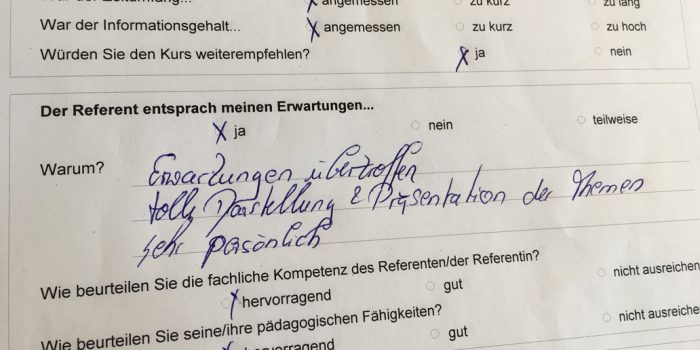 angemessen zu kurz zu lang
War der Informationsgehalt... X angemessen zu kurz zu hoch
Würden Sie den Kurs weiterempfehlen? X ja nein
Der Referent entsprach meinen Erwartungen...
X ja nein teilweise
Warum? Erwartungen übertroffen
tolle Darstellung & Präsentation der Themen
sehr persönlich
Wie beurteilen Sie die fachliche Kompetenz des Referenten/der Referentin?
X hervorragend gut nicht ausreichen
Wie beurteilen Sie seine/ihre pädagogischen Fähigkeiten?
hervorragend gut nicht ausreiche